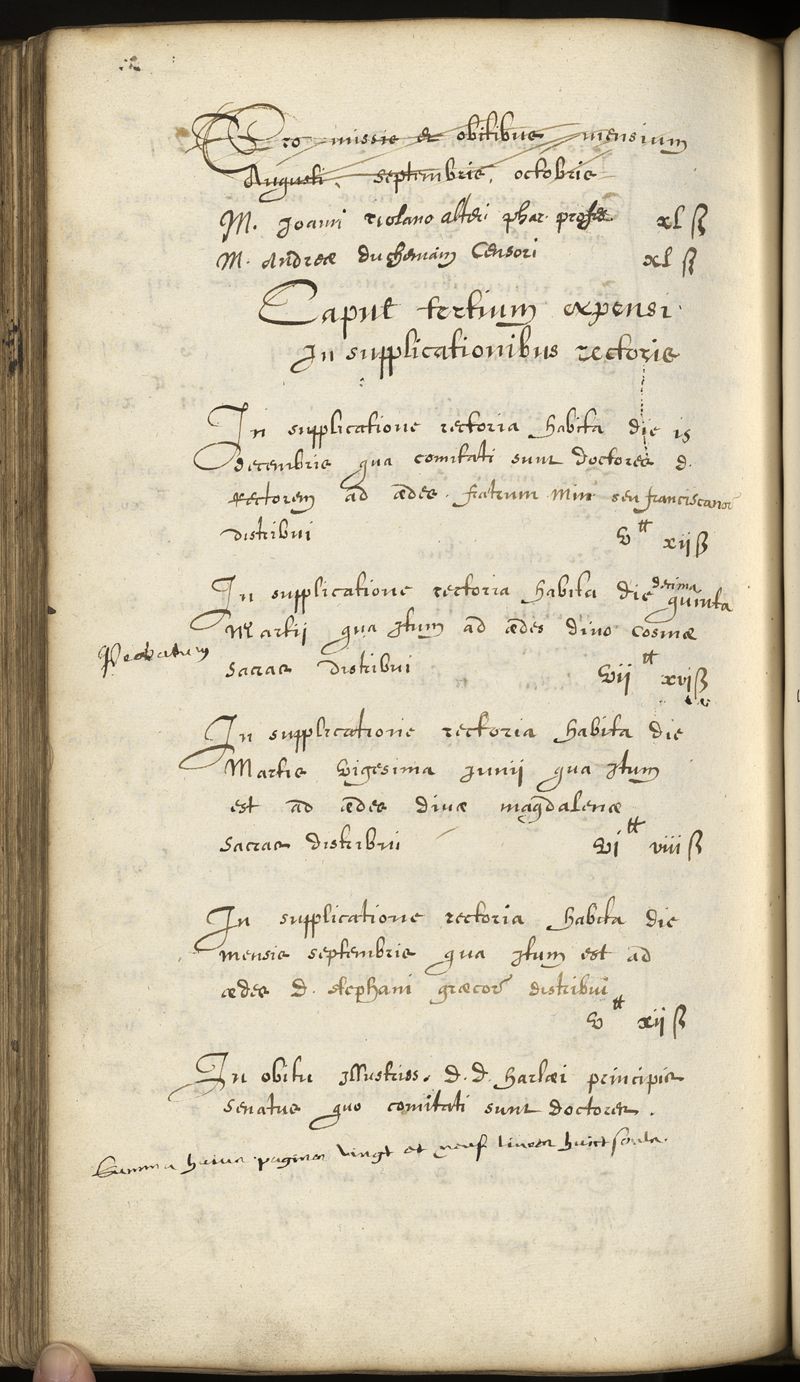 Pro missis et obitibus mensium
Augusti, septembris, octobris
M. Joanni riolano alteri phar. profess. xl ß
M. Andreæ duchemain Censori xl ß
Caput tertium expensi
In supplicationibus rectoris
In supplicatione rectoria habita die 15
decembris qua comitati sunt doctores d.
Rectorem ad ædes fratrum Min seu franciscanor
distribui v tt xij ß
In supplicatione rectoria habita die decima quinta
Martij qua Itum ad ædes divo Cosmæ
Probatum
Sacras distribui vij tt xvi ß
In supplicatione rectoria habita die
Martis vigesima Junij qua Itum
est ad ædes divæ magdalenæ
Sacras distribui vi tt viii ß
In supplicatione rectoria habita die
mensis septembris qua Itum est ad
ædes D. stephani græcor distribui
v tt xij ß
In obitu Illustriss. D. D. harlæi principis
senatus quo comitati sunt doctores.
Summa huius paginæ vingt et neuf livres huict soulz.